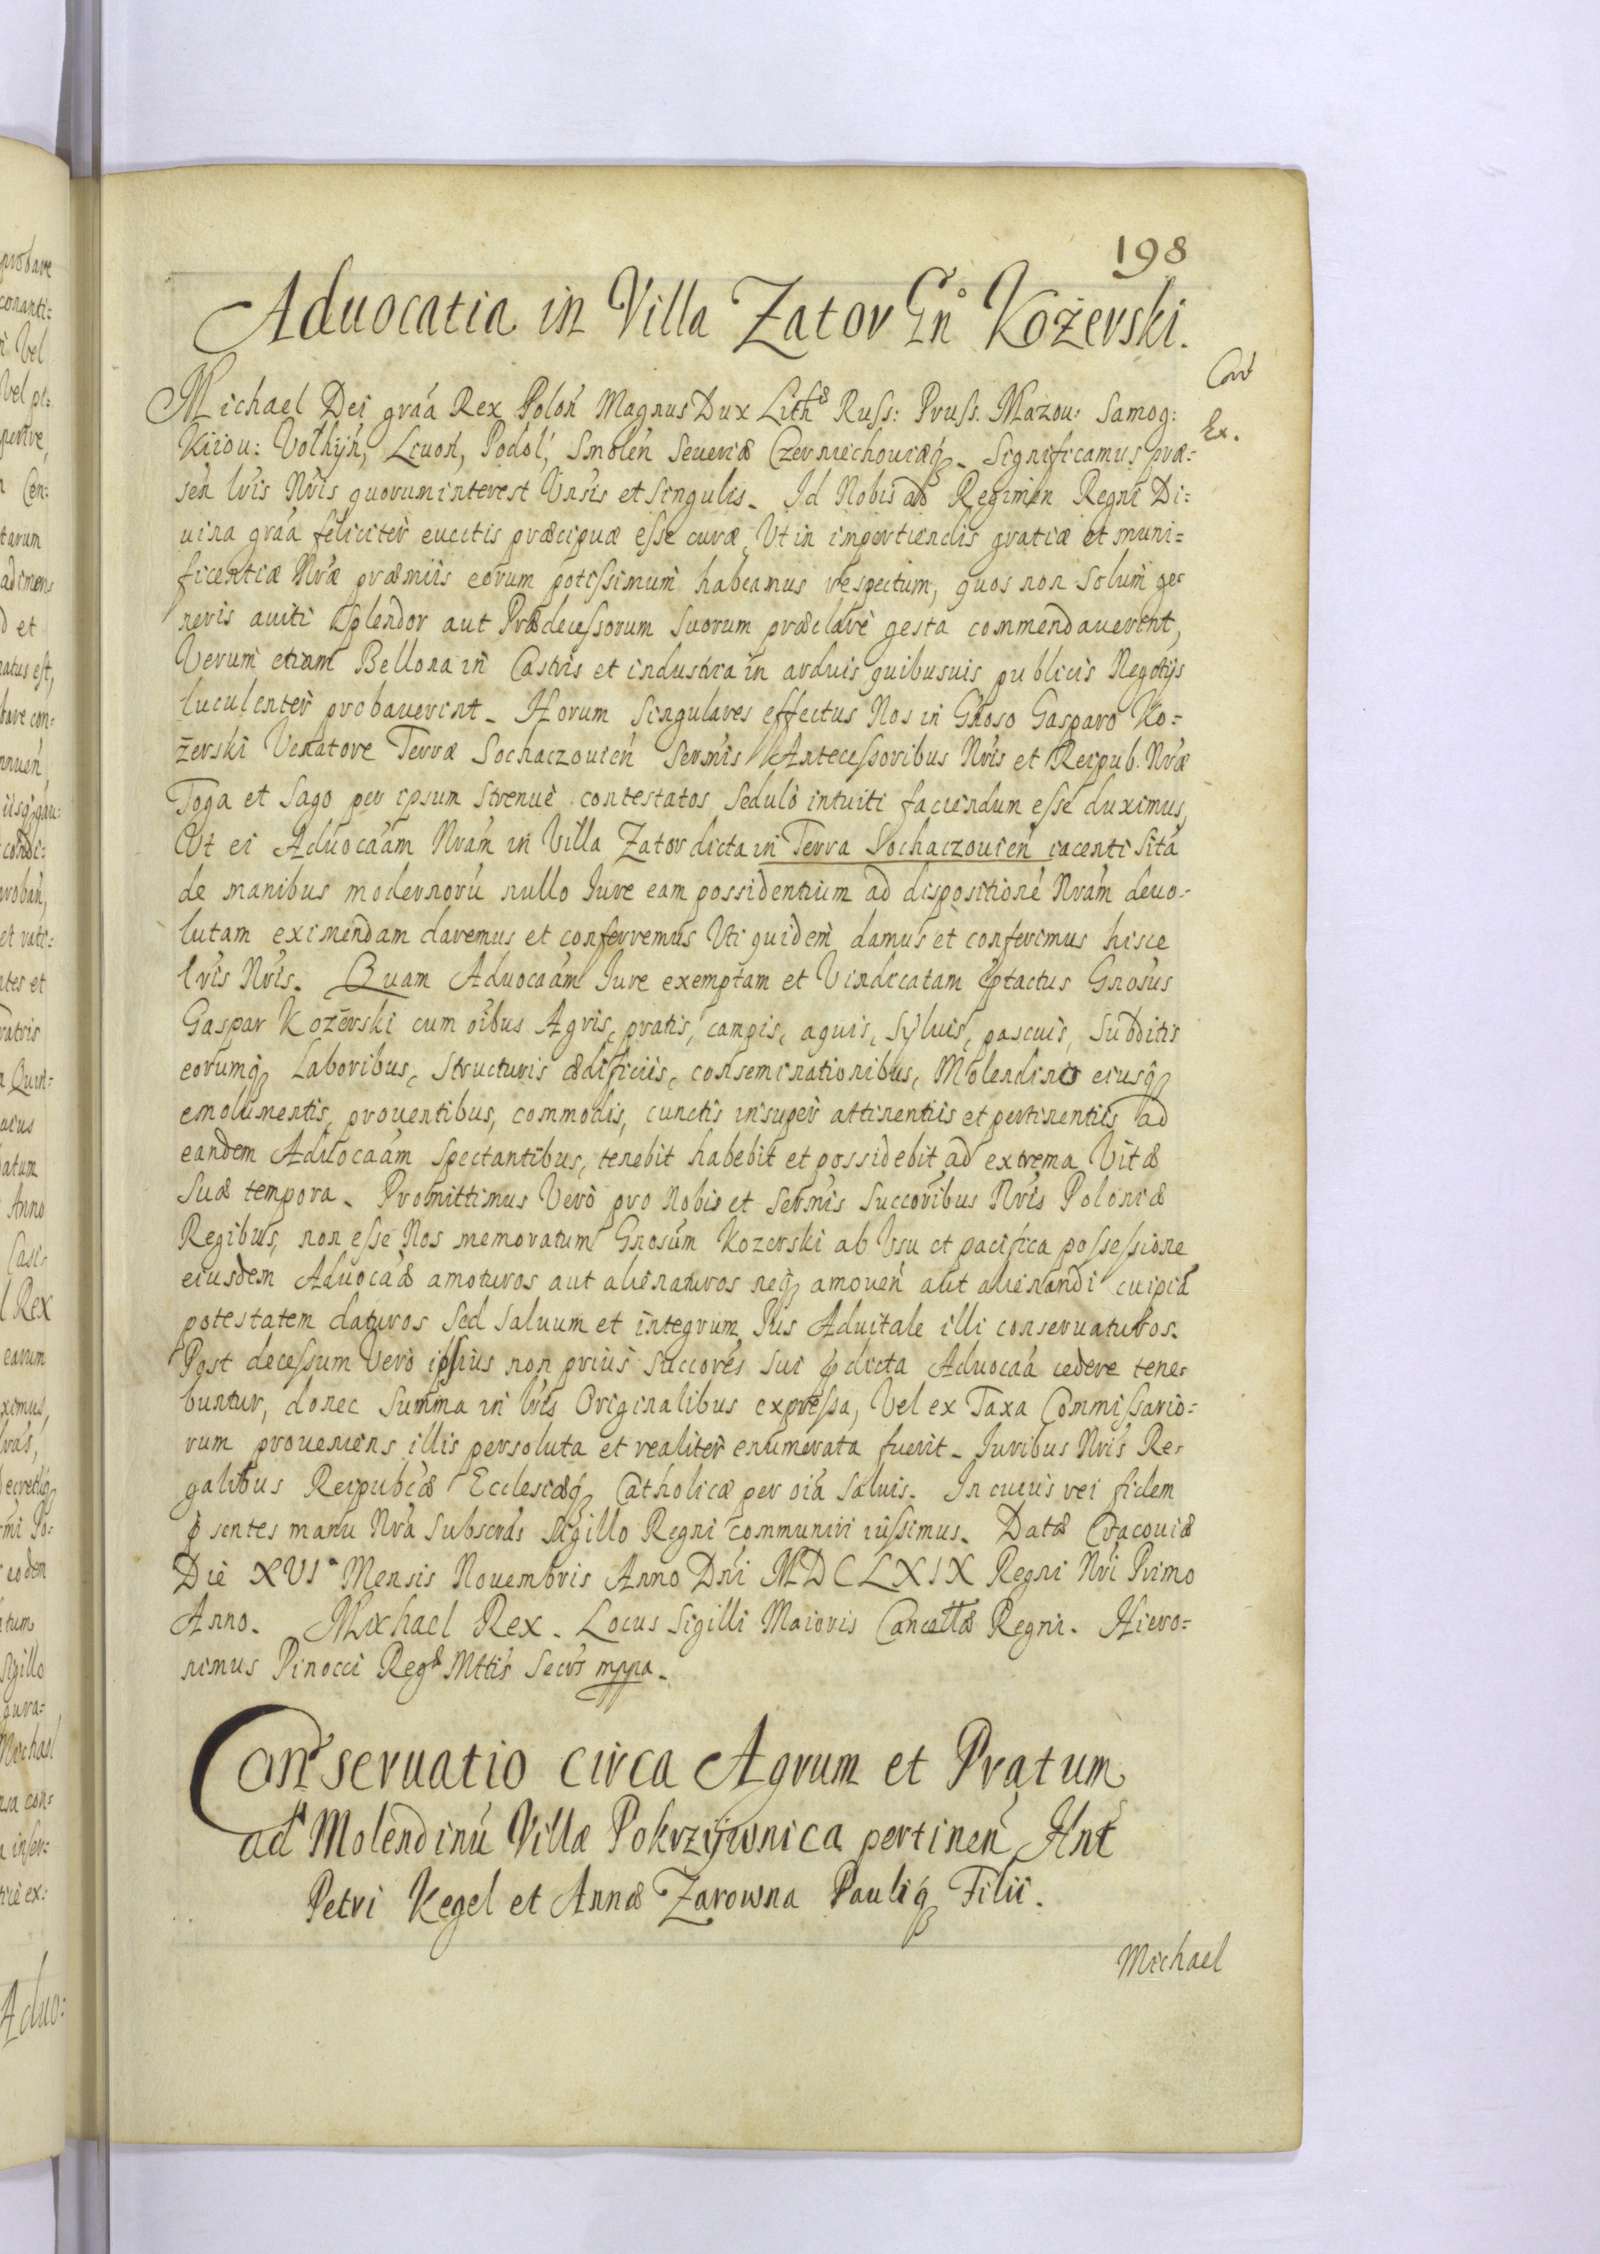 198
Aduocatia in Villa Zator Gn° Kożerski.
Con
Ex.
Michael Dei graa Rex Polon Magnus Dux Lith Russ: Pruss. Mazou: Samog:
Kiiou: Volhyn, Livon, Podol, Smolen Seueriæ Czerniechouiæq. Significamus præ:
sen lris Nris quorum interest Unsis et Singulis. Id Nobis ad Regimen Regni Di:
uina graa feliciter euectis præcipuæ esse curæ, Vt in impertiendis gratiæ et muni=
ficentiæ Nræ præmiis eorum potissimum habeamus respectum, quos non solum ge=
neris auiti Splendor aut Prædecessorum Suorum præclare gesta commendauerint,
Verum etiam Bellona in Castris et industria in arduis quibusuis publicis Negotijs
luculenter probauerint. Horum Singulares effectus Nos in Gnoso Gasparo Ko=
żerski Venatore Terræ Sochaczouien Sermis Antecessoribus Nris et Reipub. Nræ
Toga et Sago per ipsum Strenue contestatos Sedulo intuiti faciendum esse duximus,
Vt ei Aduocaam Nram in Villa Zator dicta in Terra Sochaczouien iacenti Sita
de manibus modernoru nullo Jure eam possidentium ad dispositione Nram deuo=
lutam eximendam daremus et conferremus Vti quidem damus et conferimus hisce
lris Nris. Quam Aduocaam Jure exemptam et Vindicatam ptactus Gnosus
Gaspar Kożerski cum oibus Agris, pratis, campis, aquis, Syluis, pascuis, Subditis
eorumq Laboribus, Structuris ædificiis, conseminationibus, Molendino eiusq
emolumentis, prouentibus, commodis, cunctis insuper attinentiis et pertinentiis ad
eandem Aduocaam Spectantibus, tenebit habebit et possidebit ad extrema Vitæ
Suæ tempora. Promittimus Vero pro Nobis et Sermis Succoribus Nris Poloniæ
Regibus, non esse Nos memoratum Gnosum Kozerski ab Vsu et pacifica possessione
eiusdem Aduocaæ amoturos aut alienaturos neq amouen aut alienandi cuipia
potestatem daturos Sed Saluum et integrum Jus Aduitale illi conseruaturos.
Post decessum Vero ipsius non prius Succores Sui pdicta Aduocaa cedere tene=
buntur, donec Summa in lris Originalibus expressa, Vel ex Taxa Commissario=
rum proueniens illis persoluta et realiter enumerata fuerit. Juribus Nris Re=
galibus Reipubcæ Ecclesiæq Catholicæ per oia Saluis. In cuius rei fidem
psentes manu Nra Subscras Sigillo Regni communiri iussimus. Datæ Cracouiæ
Die XVI Mensis Nouembris Anno Dni MDCLXIX Regni Nri Primo
Anno. Michael Rex. Locus Sigilli Maioris Cancellæ Regni. Hiero=
nimus Pinocci Reg Mttis Secrs mppa.
Conseruatio circa Agrum et Pratum
ad Molendinu Villæ Pokrzywnica pertinen Hnt
Petri Kegel et Annæ Zarowna Pauliq Filii.
Michael